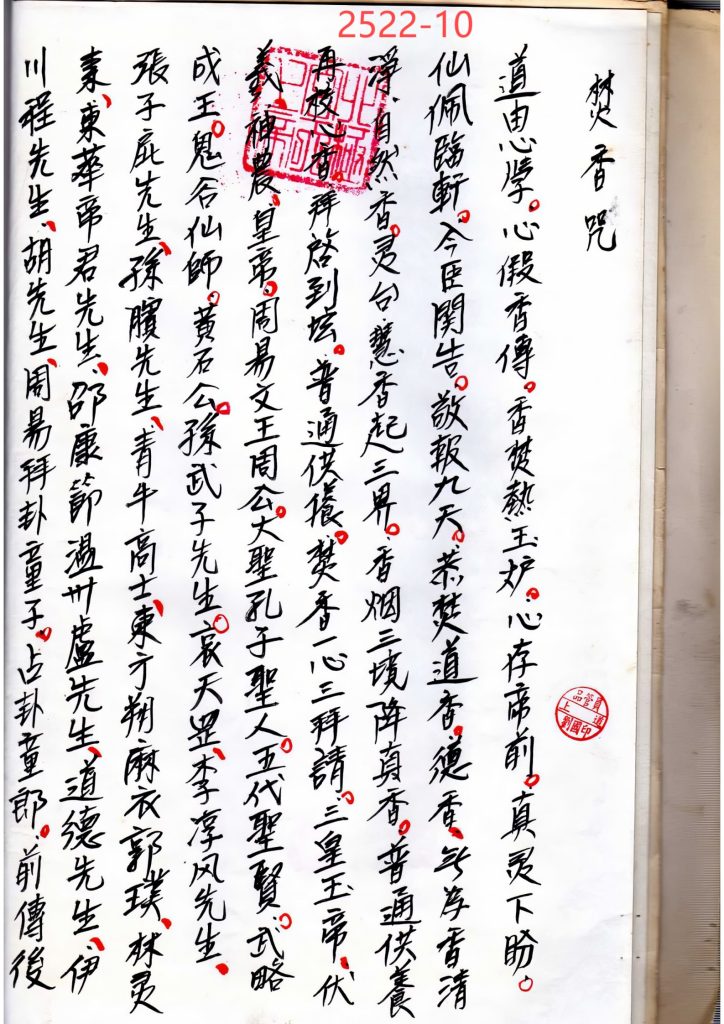 2522-10
焚香咒
道由心學。心假香傳。香焚熱玉炉。心存帝前。真灵下盼。
仙佩臨軒。今臣関告。敬報九天。恭焚道香。德香、无为香清
淨、自然香。灵台慧香起三界。香烟三境降真香。普通供養
再校心香。拜啓到坛。普通供養。焚香一心三拜請、三皇玉帝、伏
義、神農、皇帝。周易文王周公。大聖孔子聖人、五代聖賢、武略
成王。鬼谷仙師。黃石公。孫武子先生。袁天罡、李淳风先生、
張子房先生、孫臏先生、青牛高士、東方朔麻衣郭璞、林灵
素、東華帝君先生、邵康節温卅盧先生、道德先生、伊
川程先生、胡先生、周易拜卦童子。占卦童郎、前傳後
品管員
上道
劉國印